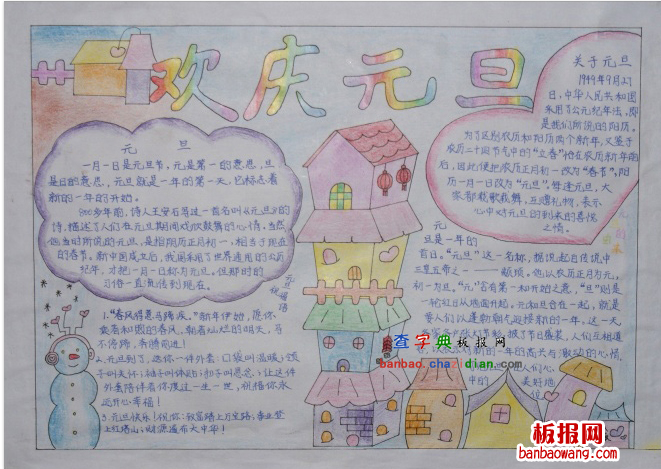 欢庆元旦
元 旦
一月一日是元旦节,元是第一的意思,旦
是日的意思,元旦就是一年的第一天,它标志着
新的一年的开始。
800多年前,诗人王安石写过一首名叫《元旦》的
诗,描述了人们在元旦期间或欢鼓舞的心情。当然
但当时所说的元旦,是指阴历正月初一,相当于现在
的春节。新中国成立后,我国采用了世界通用的公元
纪年,才把一月一日称为元旦。但那时的
习俗一直流传到现在。
关于元旦
1949年9月27
日,中华人民共和国
采用了公元纪年法,即
是我们所说的阳历。
为了区别农历和阳历两个新年,又鉴于
农历二十四节气中的“立春”恰在农历新年前
后,因此便把农历正月初一改为“春节”,阳
历一月一日改为“元旦”。每逢元旦,大
家都载歌载舞,互赠礼物,表示
心中对元旦的到来的喜悦
之情。
元旦祝福语
1.“春风得意马蹄疾。”新年伊始,愿你
乘着和煦的春风,朝着灿烂的明天,马
不停蹄,奔腾前进!
2.元旦到了,送你一件外套:口袋叫温暖;领
子叫关怀;袖子叫体贴;扣子叫思念;让这件
外套陪伴着你度过一生一世,祝福你永
远开心幸福!
3.元旦快乐!祝你:致富踏上万宝路;事业登
上红塔山;财源遍布大中华!
元
旦是一年的
首日。“元旦”这一名称,据说起自传说中
三皇五帝之一——颛顼。他以农历正月为元,
初一为旦。“元”您有第一和开始之意,“旦”则是
一轮红日从地面升起。元和旦合在一起,就是
要人们以蓬勃朝气迎接新的一年。这一天
披了节日盛装,人们互相道
新的一年的高兴与激动的心情
人们心
中的
美好地
位
查字典板报网
banbao.chazidian.com
板报网
banbaowang.com